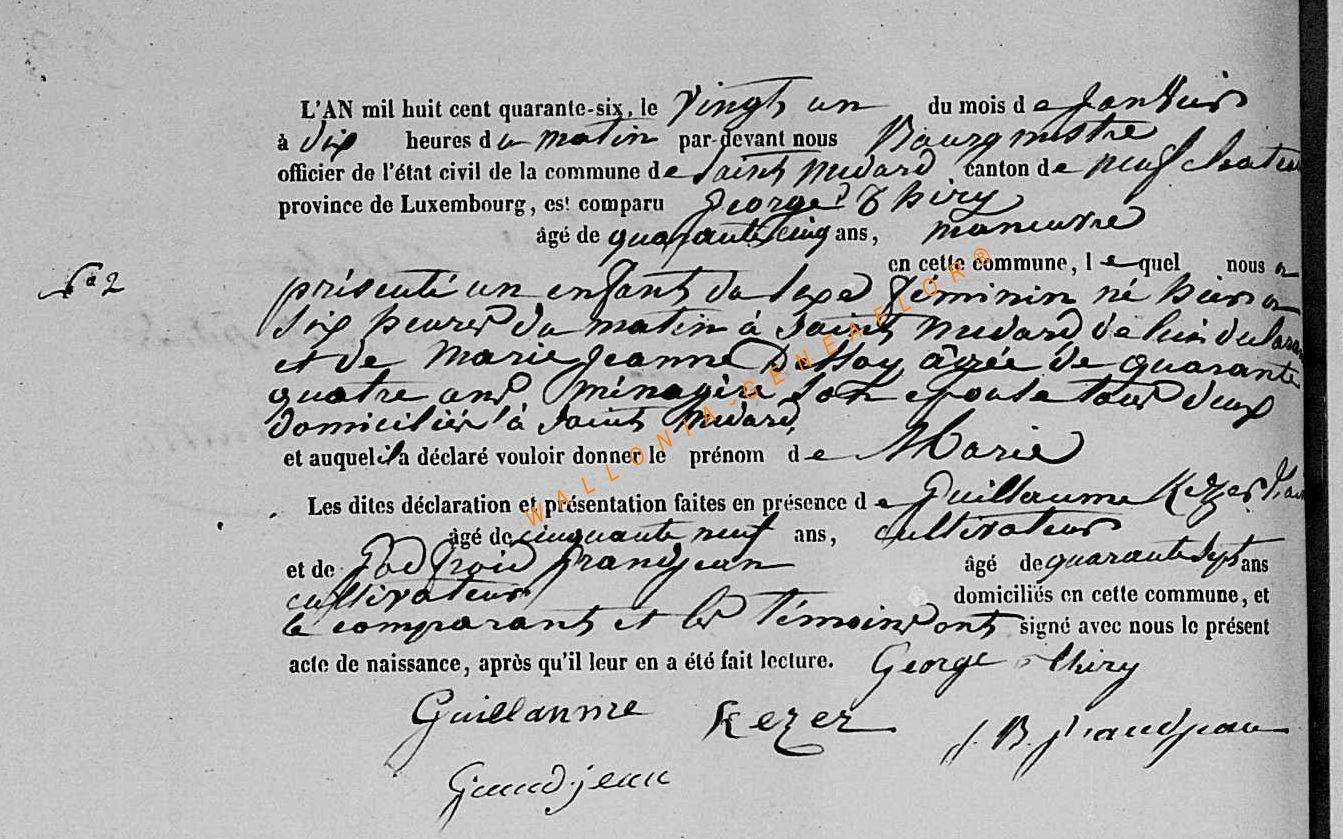 L'AN mil huit cent quarante-six, le vingt un du mois de Janvier
à dix heures du matin par-devant nous Bourgmestre
officier de l'état civil de la commune de Saint Médard canton de neufchateau
province de Luxembourg, est comparu George Thiry
âgé de quarante cinq ans, maneuvre
en cette commune, lequel nous a
Nº 2
présenté un enfant du sexe féminin né hier a
six heures du matin à Saint Médard de lui
et de Marie Jeanne Dessoy âgée de quarante
quatre ans ménagère son epouse tous deux
domiciliés à Saint Médard,
et auquel il a déclaré vouloir donner le prénom de Marie
Les dites déclaration et présentation faites en présence de Guillaume Kezer
âgé de cinquante neuf ans, cultivateur
et de Godfroid Grandjean âgé de quarante sept ans
cultivateur domiciliés en cette commune, et
le comparant et les témoins ont signé avec nous le présent
acte de naissance, après qu'il leur en a été fait lecture. George Thiry
Guillaume Kezer J. B. Grandjean
Grandjean
WALLONIA-GENEAFLOR®